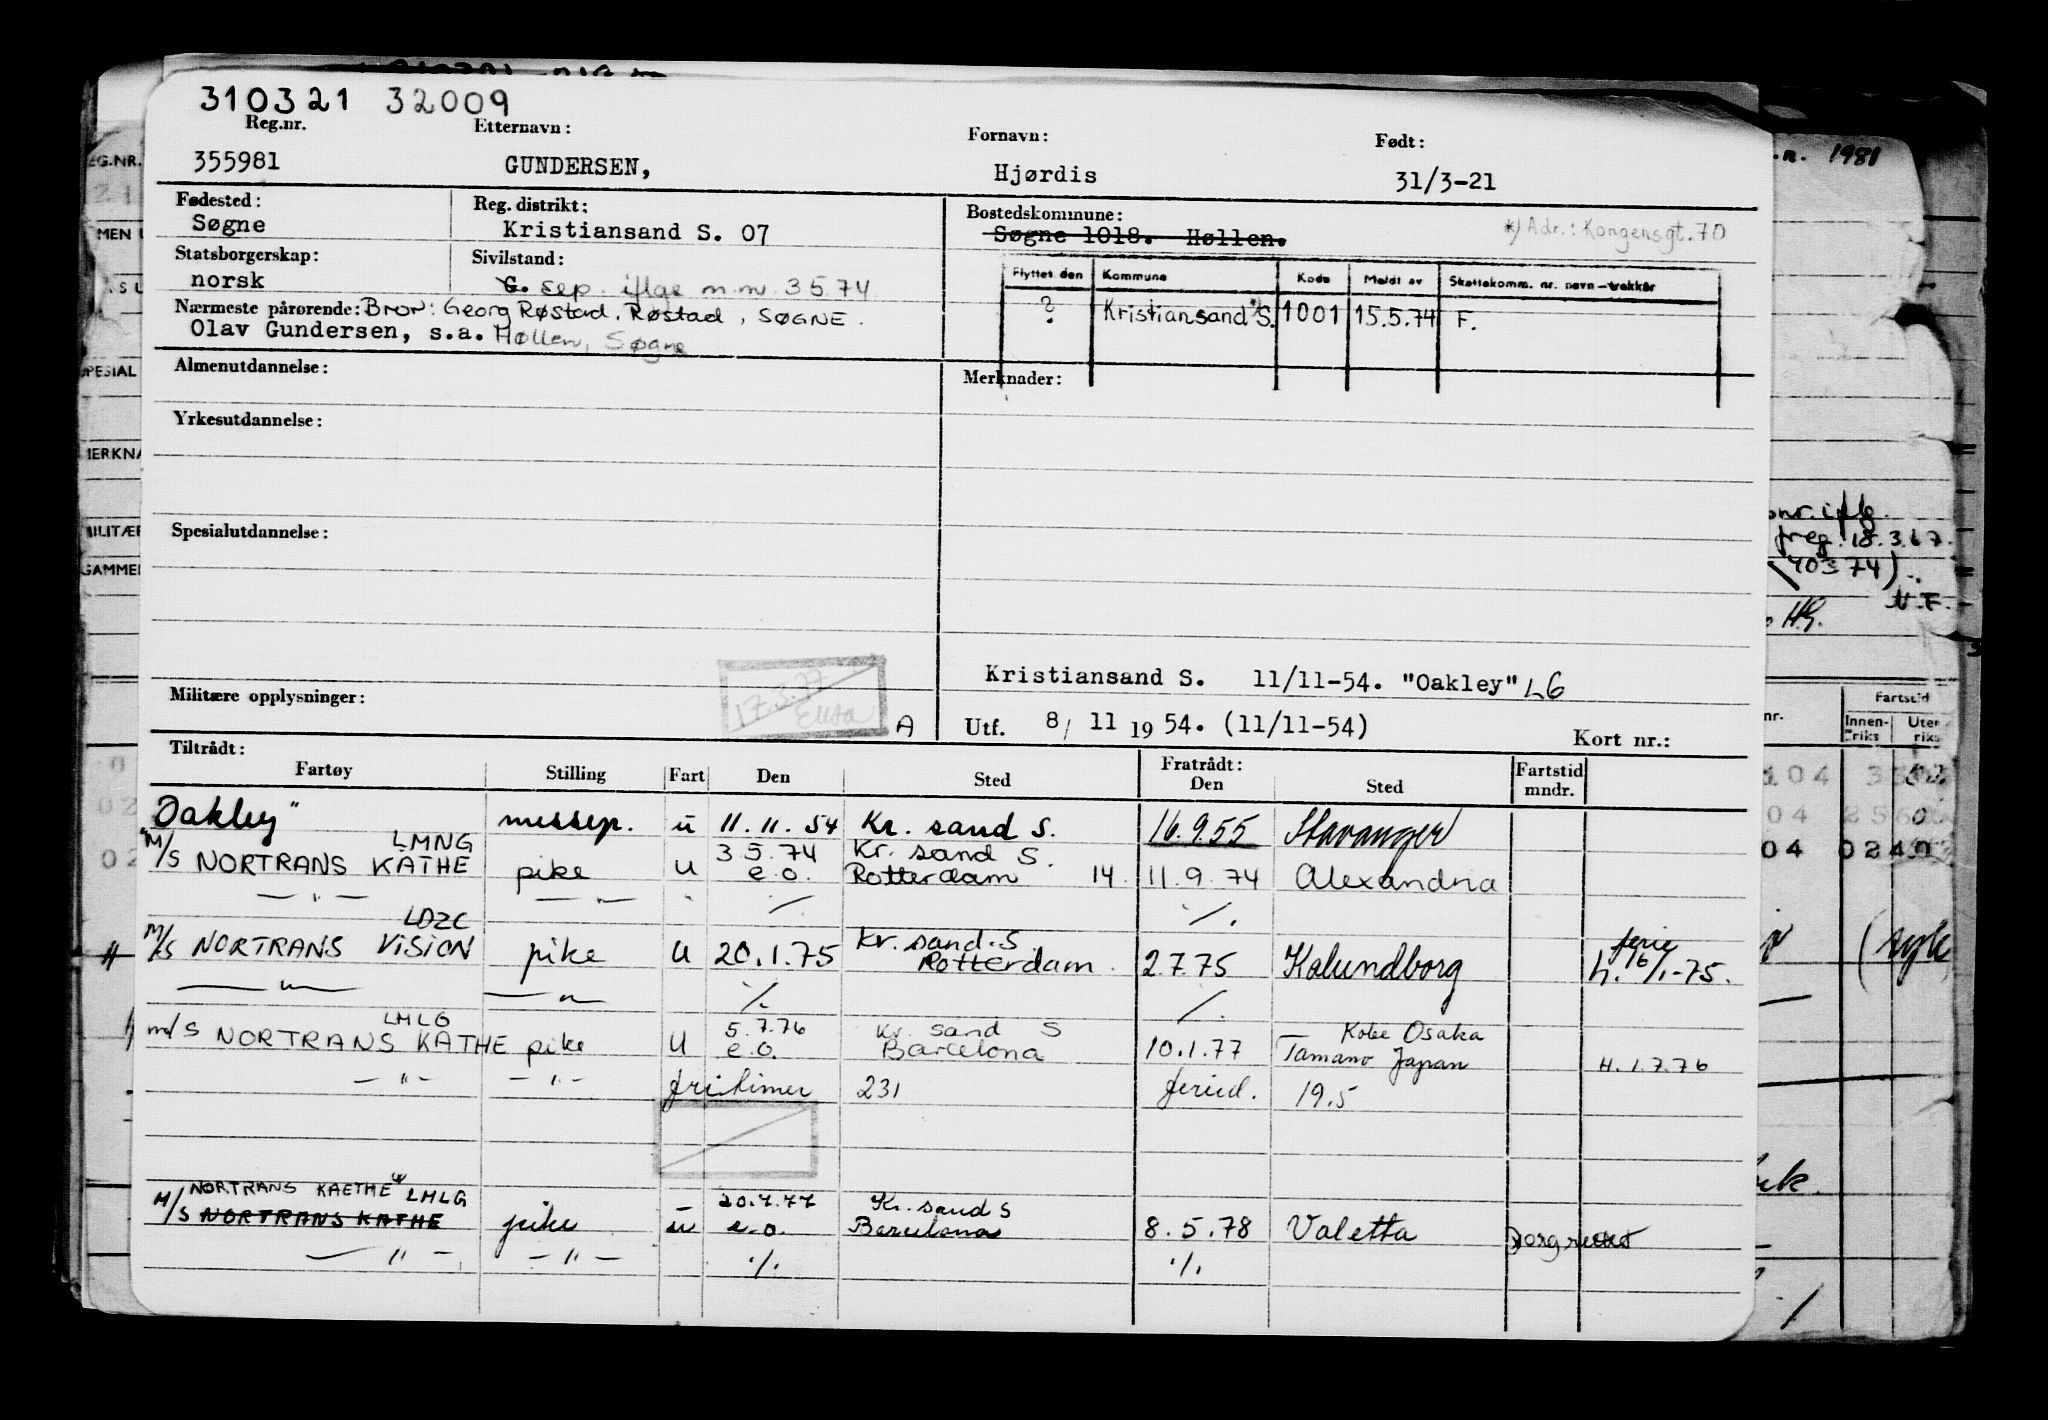 310321 32009
Reg.nr. Etternavn: Fornavn: Født:
355981 GUNDERSEN, Hjørdis 31/3-21
Fødested: Reg. distrikt: Bostedskommune:
Søgne Kristiansand S. 07 Søgne 1018. Høllen. *) Adr.: Kongensgt. 70
Statsborgerskap: Sivilstand:
norsk G. sep. iflge m.m. 3574
Flyttet den Kommune Kode Meldt av Skattekomm. nr. navn-trekkår
? Kristiansand *) S. 1001 15.5.74 F.
Nærmeste pårørende: Bror: Georg Røstad, Røstad, SØGNE.
Olav Gundersen, s.a. Høllen, Søgne
Almenutdannelse: Merknader:
Yrkesutdannelse:
Spesialutdannelse:
Kristiansand S. 11/11-54. "Oakley" LG
Militære opplysninger: 17.3.77 A
Utf. 8/ 11 1954. (11/11-54) Kort nr.:
Tiltrådt: Fratrådt:
Fartøy Stilling Fart Den Sted Den Sted Fartstid mndr.
"Oakley" messep. u 11.11.54 Kr. sand S. 16.9.55 Stavanger
LMNG 3574 Kr. sand S.
M/S NORTRANS KATHE pike U e.o. Rotterdam 14. 11.9.74 Alexandria
— " — — " — " ./. ./.
LDZC Kr. sand. S ferie
M/S NORTRANS VISION pike U 20.1.75 Rotterdam. 2775 Kalundborg h. 16/1-75.
— " — — " — ./. ./.
LHLG 5.7.76 Kr. sand S Kobe Osaka
m/s NORTRANS KATHE pike U e.o. Barcelona 10.1.77 Tamano Japan H. 1.7.76
— " — — " — fritimer 231 feried. 19.5
NORTRANS KAETHE LHLG 20.7.77 Kr. sand S
M/S NORTRANS KATHE pike u e.o. Barcelona 8.5.78 Valetta
— " — — " — ./. ./.
n. 1981
EG.NR.
MEN
PESIAL
MERKNA
MILITÆR
GAMMEL
freg. 18.3.67.
40374)
H.G.
Fartstid
nr. Innenriks Uteriks
104
04 256
04 0240